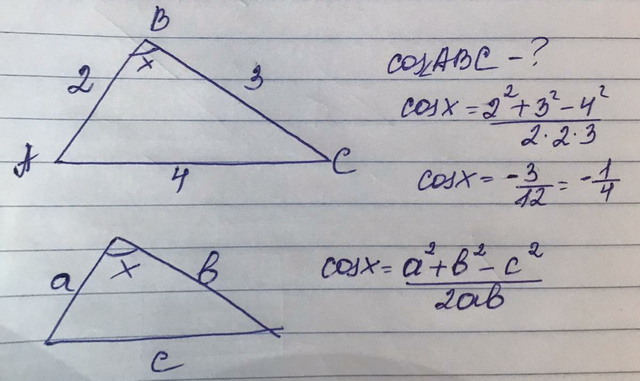 B
2
x
3
A
4
C
cos∠ABC - ?
cosx = (2² + 3² - 4²) / (2·2·3)
cosx = -3/12 = -1/4
a
x
b
c
cosx = (a² + b² - c²) / (2ab)